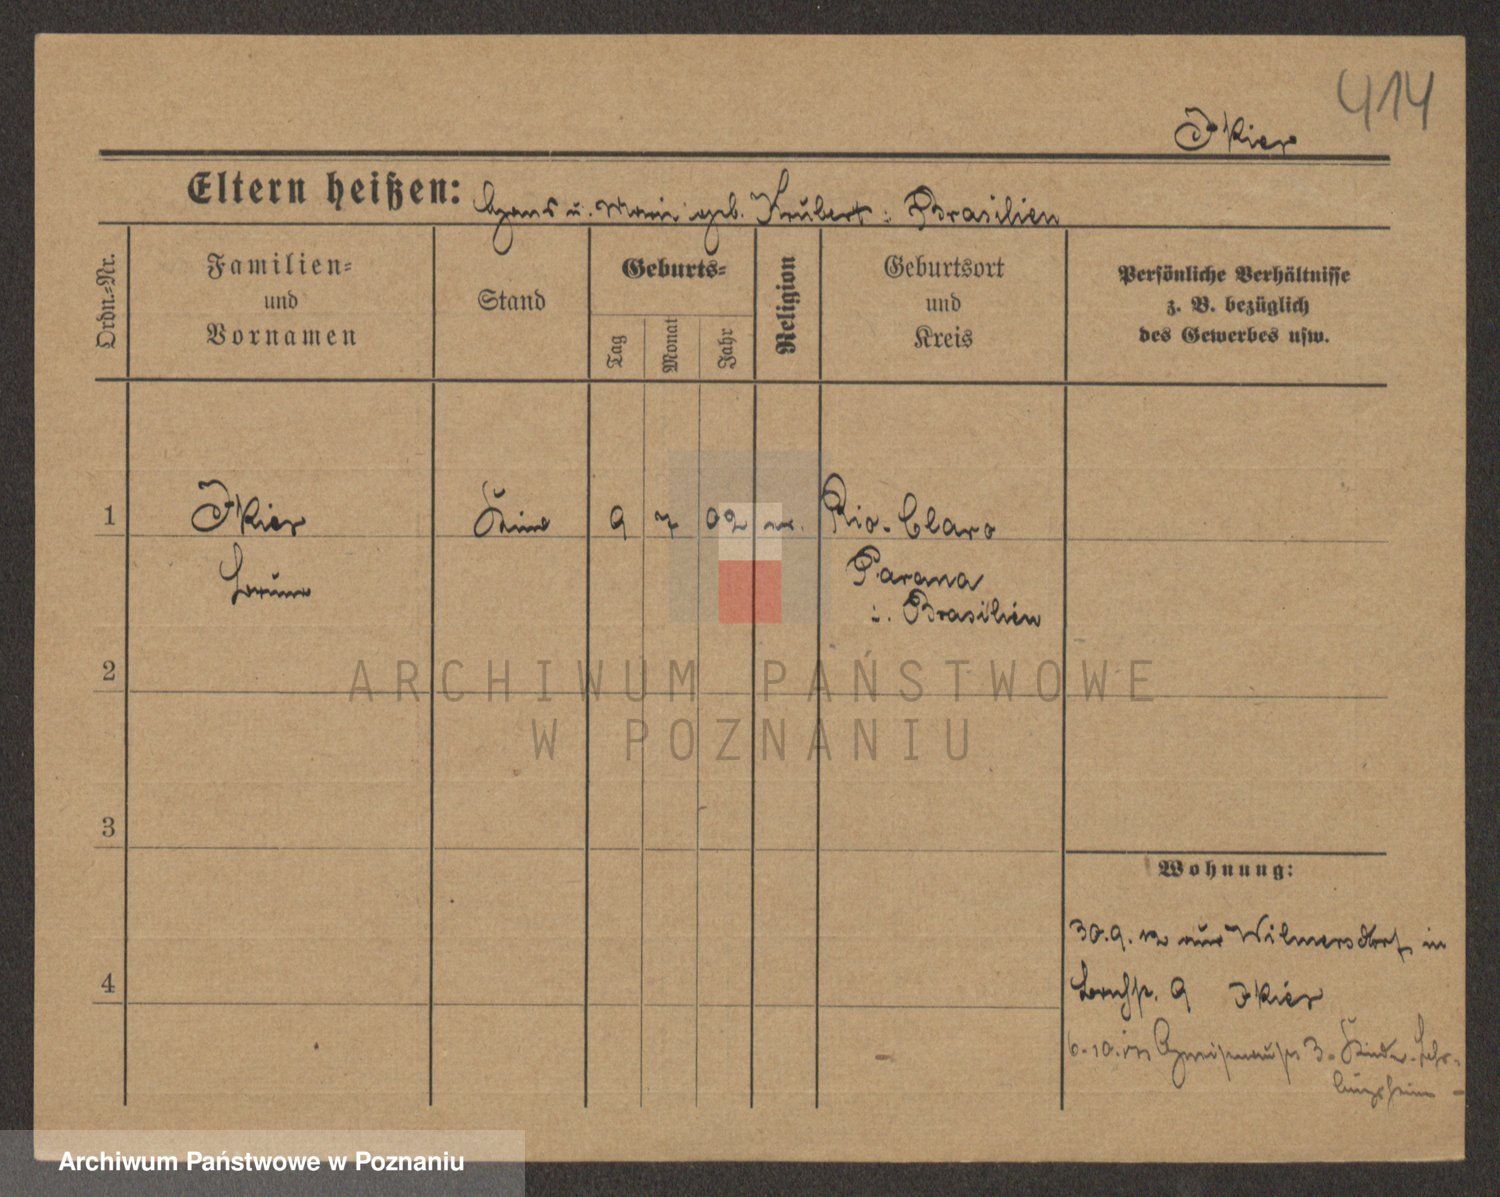 414
Ikier
Eltern heißen: Hans u. Marie geb. Krubert i. Brasilien
Ordn.-Nr.
Familien-
und
Vornamen
Stand
Geburts-
Tag
Monat
Jahr
Religion
Geburtsort
und
Kreis
Persönliche Verhältnisse
z. B. bezüglich
des Gewerbes usw.
1 Ikier 9 7 02 Rio-Claro
Parana
i. Brasilien
2
ARCHIWUM PAŃSTWOWE
W POZNANIU
3
Wohnung:
30.9. 12 aus Wilmersdorf in
4
9 Ikier
6.10.
3.
Archiwum Państwowe w Poznaniu